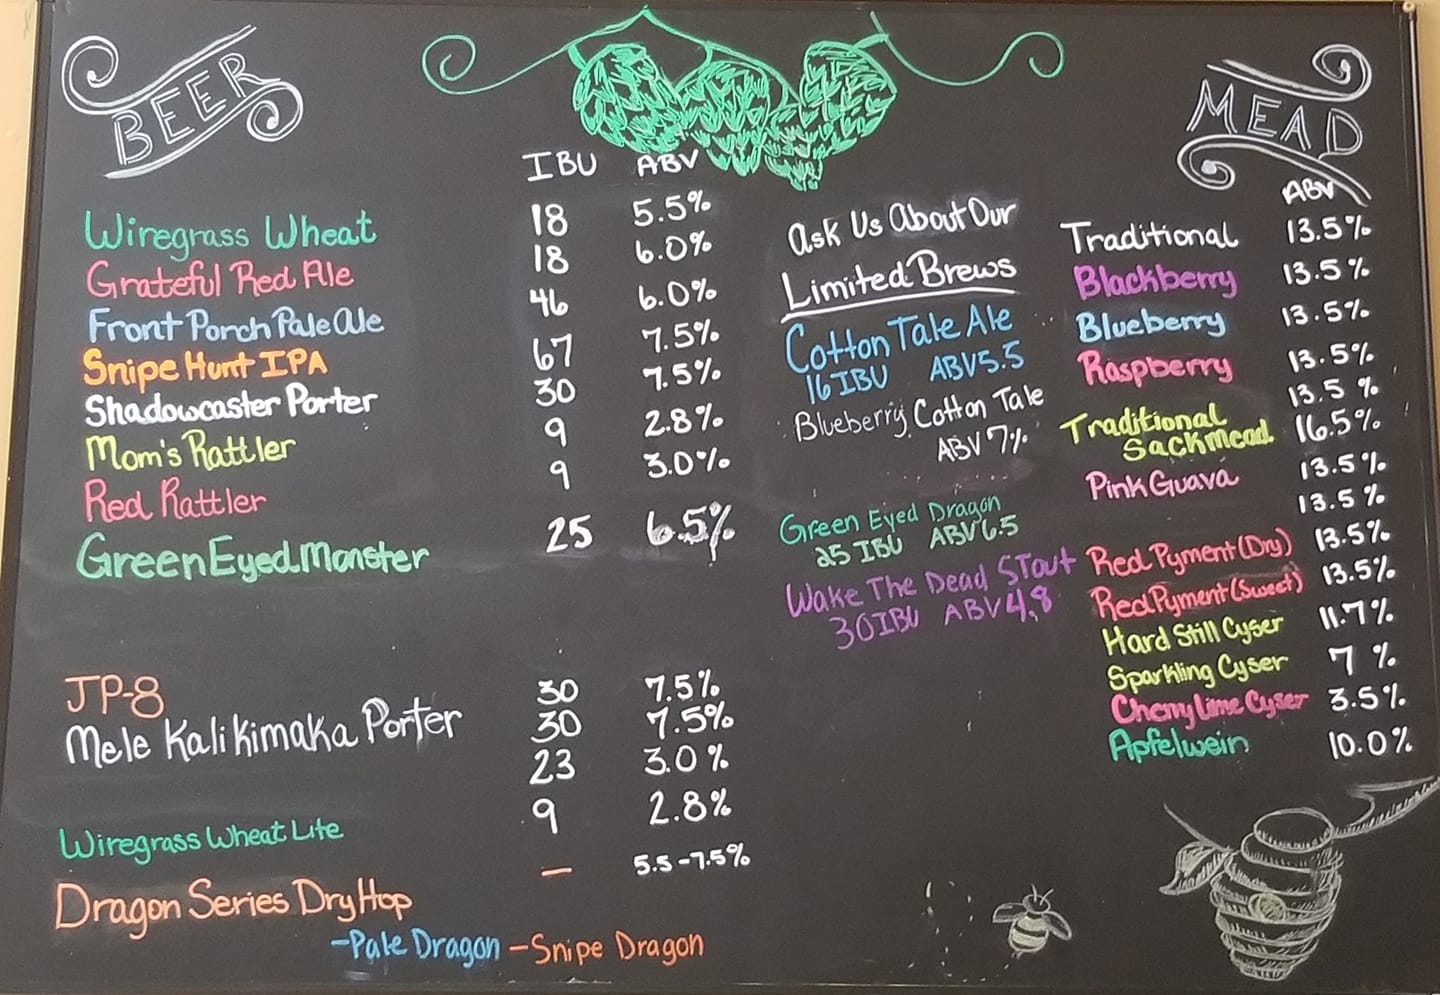 BEER
MEAD
IBU ABV
Wiregrass Wheat 18 5.5%
Grateful Red Ale 18 6.0%
Front Porch Pale Ale 46 6.0%
Snipe Hunt IPA 67 7.5%
Shadowcaster Porter 30 7.5%
Mom's Rattler 9 2.8%
Red Rattler 9 3.0%
Green Eyed Monster 25 6.5%
JP-8 30 7.5%
Mele Kalikimaka Porter 30 7.5%
23 3.0%
Wiregrass Wheat Lite 9 2.8%
Dragon Series Dry Hop — 5.5-7.5%
-Pale Dragon -Snipe Dragon
Ask Us About Our
Limited Brews
Cotton Tale Ale
16 IBU ABV 5.5
Blueberry Cotton Tale
ABV 7%
Green Eyed Dragon
25 IBU ABV 6.5
Wake The Dead Stout
30 IBU ABV 4.8
ABV
Traditional 13.5%
Blackberry 13.5%
Blueberry 13.5%
Raspberry 13.5%
13.5%
Traditional
Sackmead 16.5%
Pink Guava 13.5%
13.5%
Red Pyment (Dry) 13.5%
Red Pyment (Sweet) 13.5%
Hard Still Cyser 11.7%
Sparkling Cyser 7%
Cherry Lime Cyser 3.5%
Apfelwein 10.0%